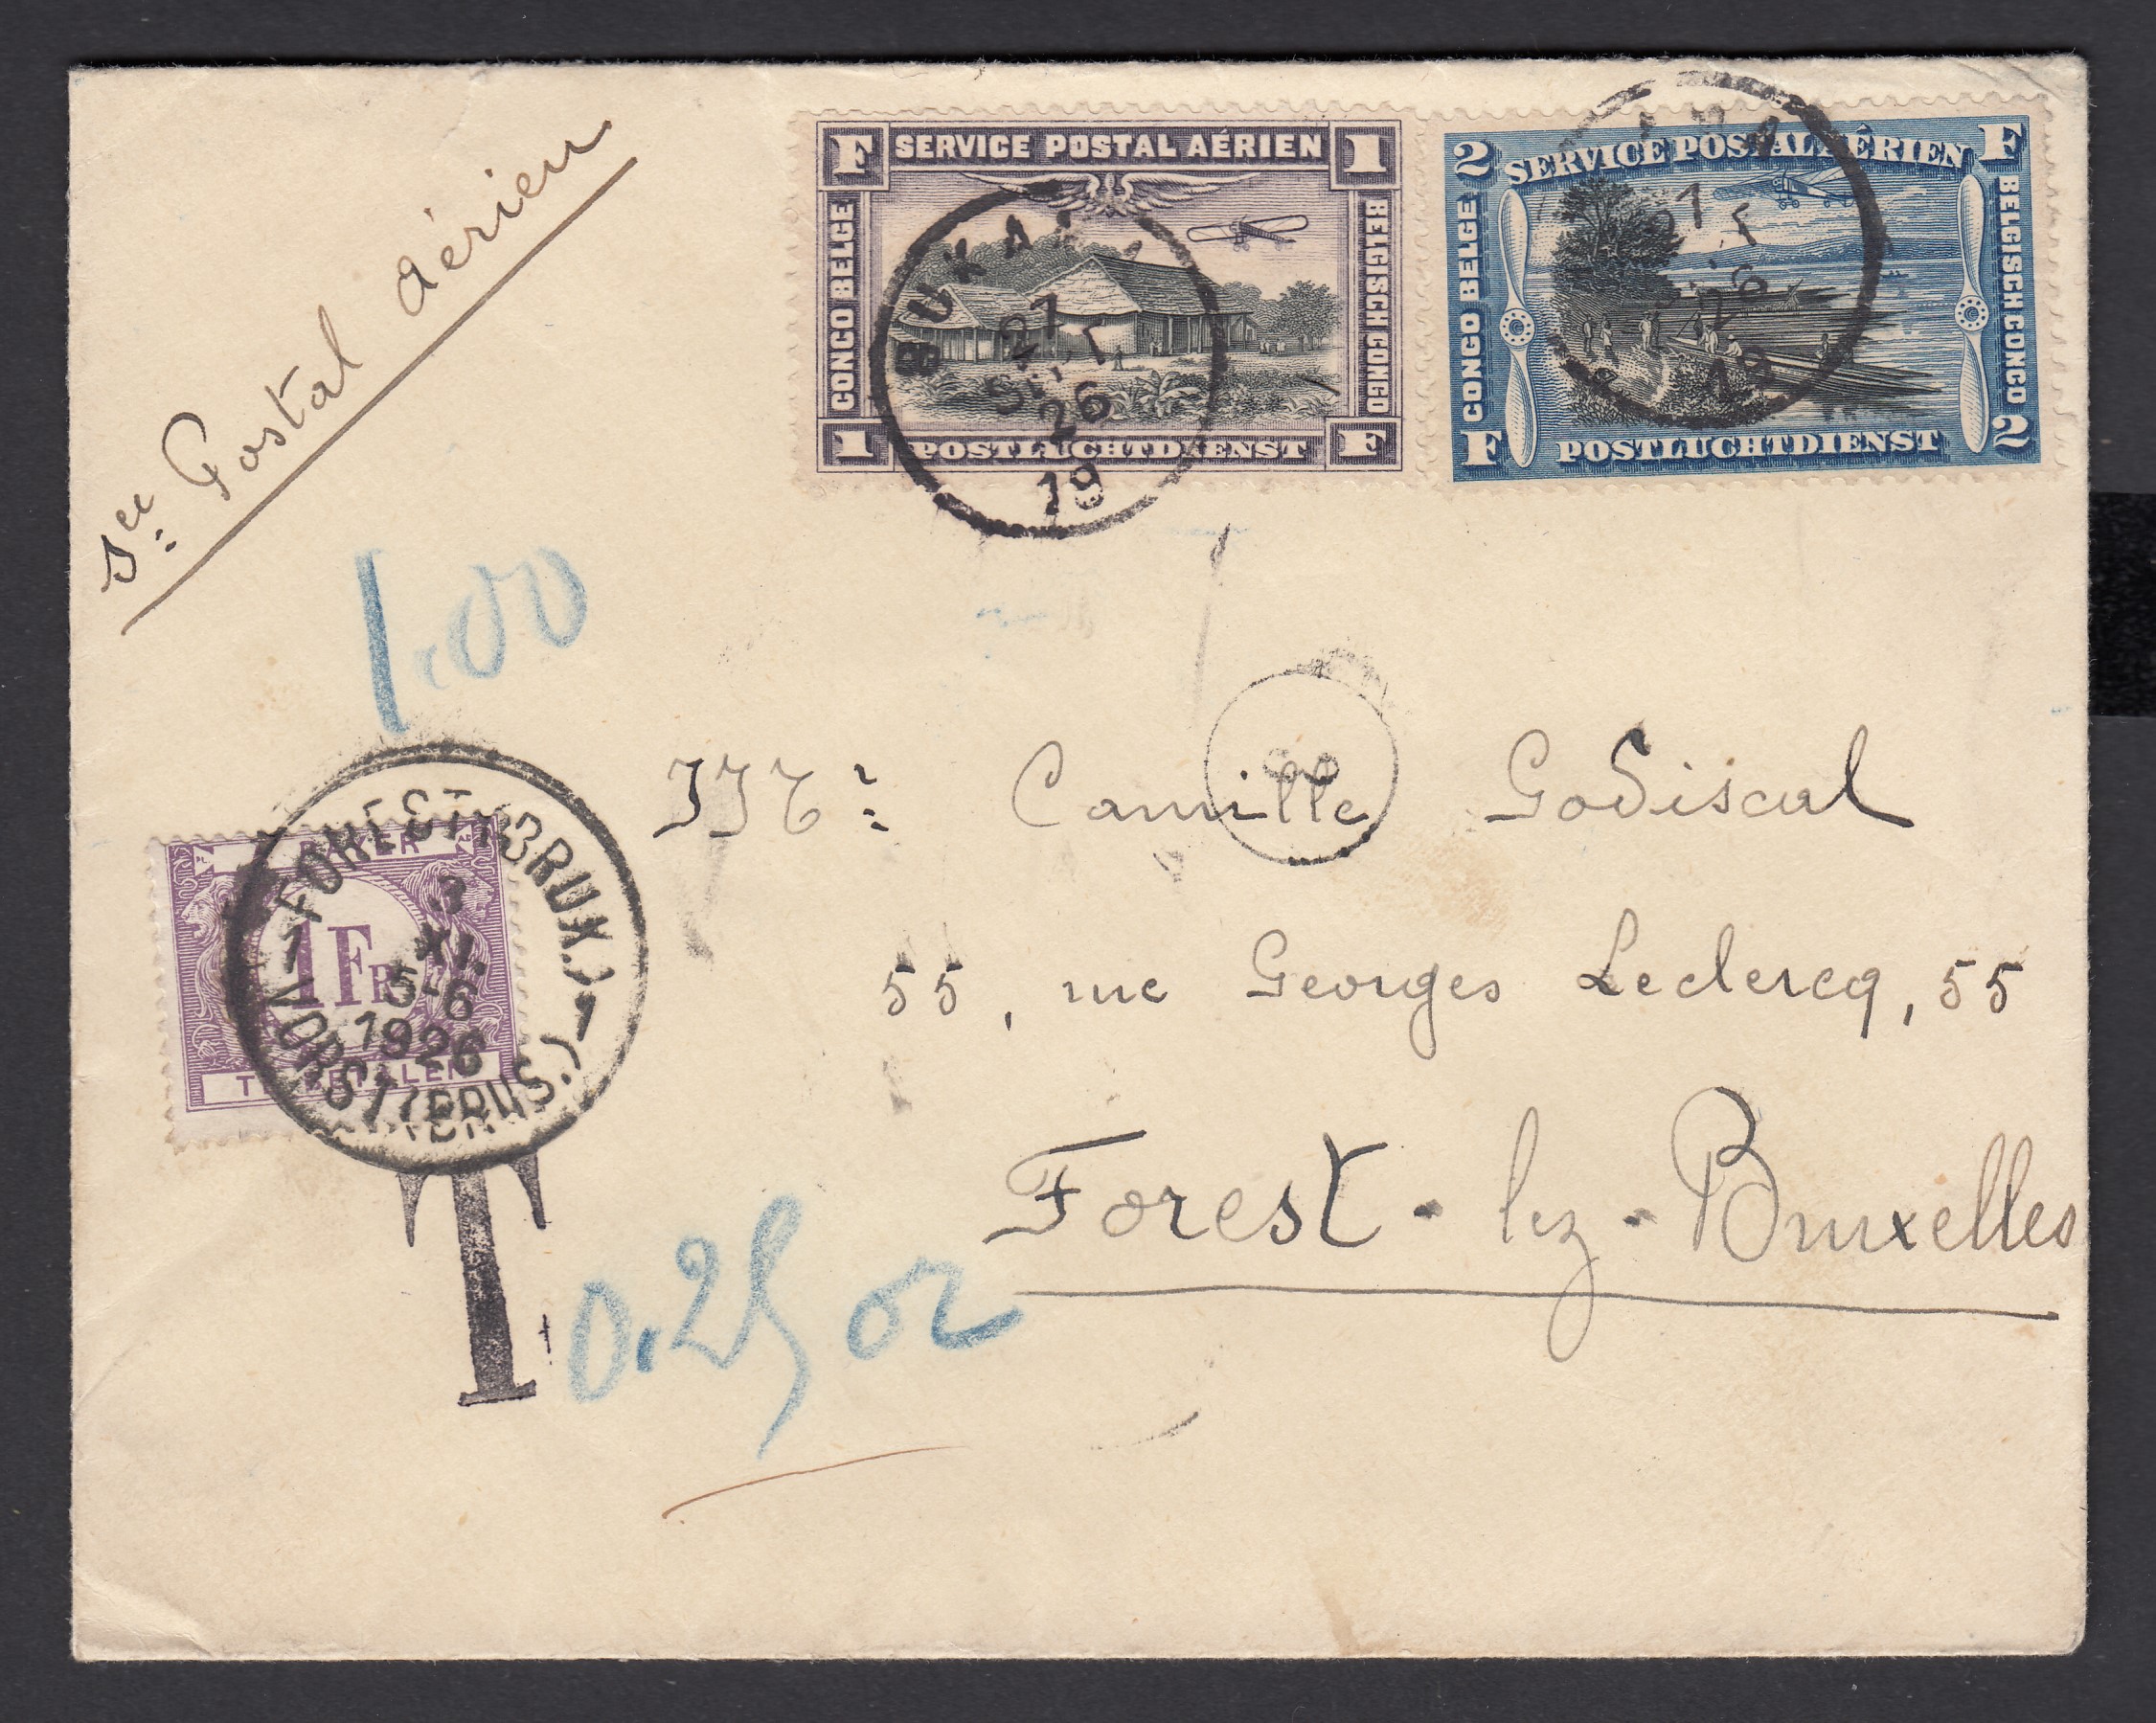 Sce Postal aérien
F SERVICE POSTAL AÉRIEN 1
CONGO BELGE
BELGISCH CONGO
1 POSTLUCHTDIENST F
BUKAMA
27
SEPT
26
19
2 SERVICE POSTAL AÉRIEN F
CONGO BELGE
BELGISCH CONGO
F POSTLUCHTDIENST 2
27
26
19
1.00
A PAYER
1 FR
TE BETALEN
1 FOREST (BRUX.) 1
3
XI.
5-6
1926
VORST (BRUS.)
Mr Camille Godiscal
55, rue Georges Leclercq, 55
Forest-lez-Bruxelles
T
0.25 or